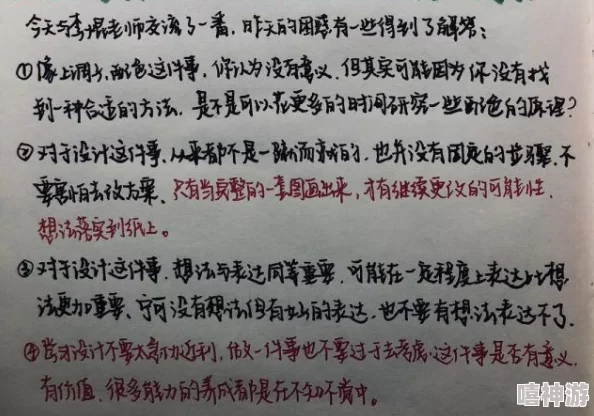 今天与李焜老师交流了一番，昨天的困惑有一些得到了解答：
①像上调子，配色这件事，你认为没有意义，但其实可能因为你没有找
到一种合适的方法，是不是可以花更多的时间研究一些配色的原理？
②对于设计这件事，从来都不是一蹴而就的，也并没有固定的步骤，不
要害怕去改方案，只有当完整的一套图画出来，才有继续更改的可能性，
想法落实到纸上。
③对于设计这件事，想法与表达同等重要，可能在一定程度上表达比想
法更加重要，宁可没有想法但有好的表达，也不要有想法表达不了。
④学习设计不要太急功近利，做一件事也不要过于去考虑这件事是否有意义，
有价值，很多能力的养成都是在不知不觉中。
嘻神游